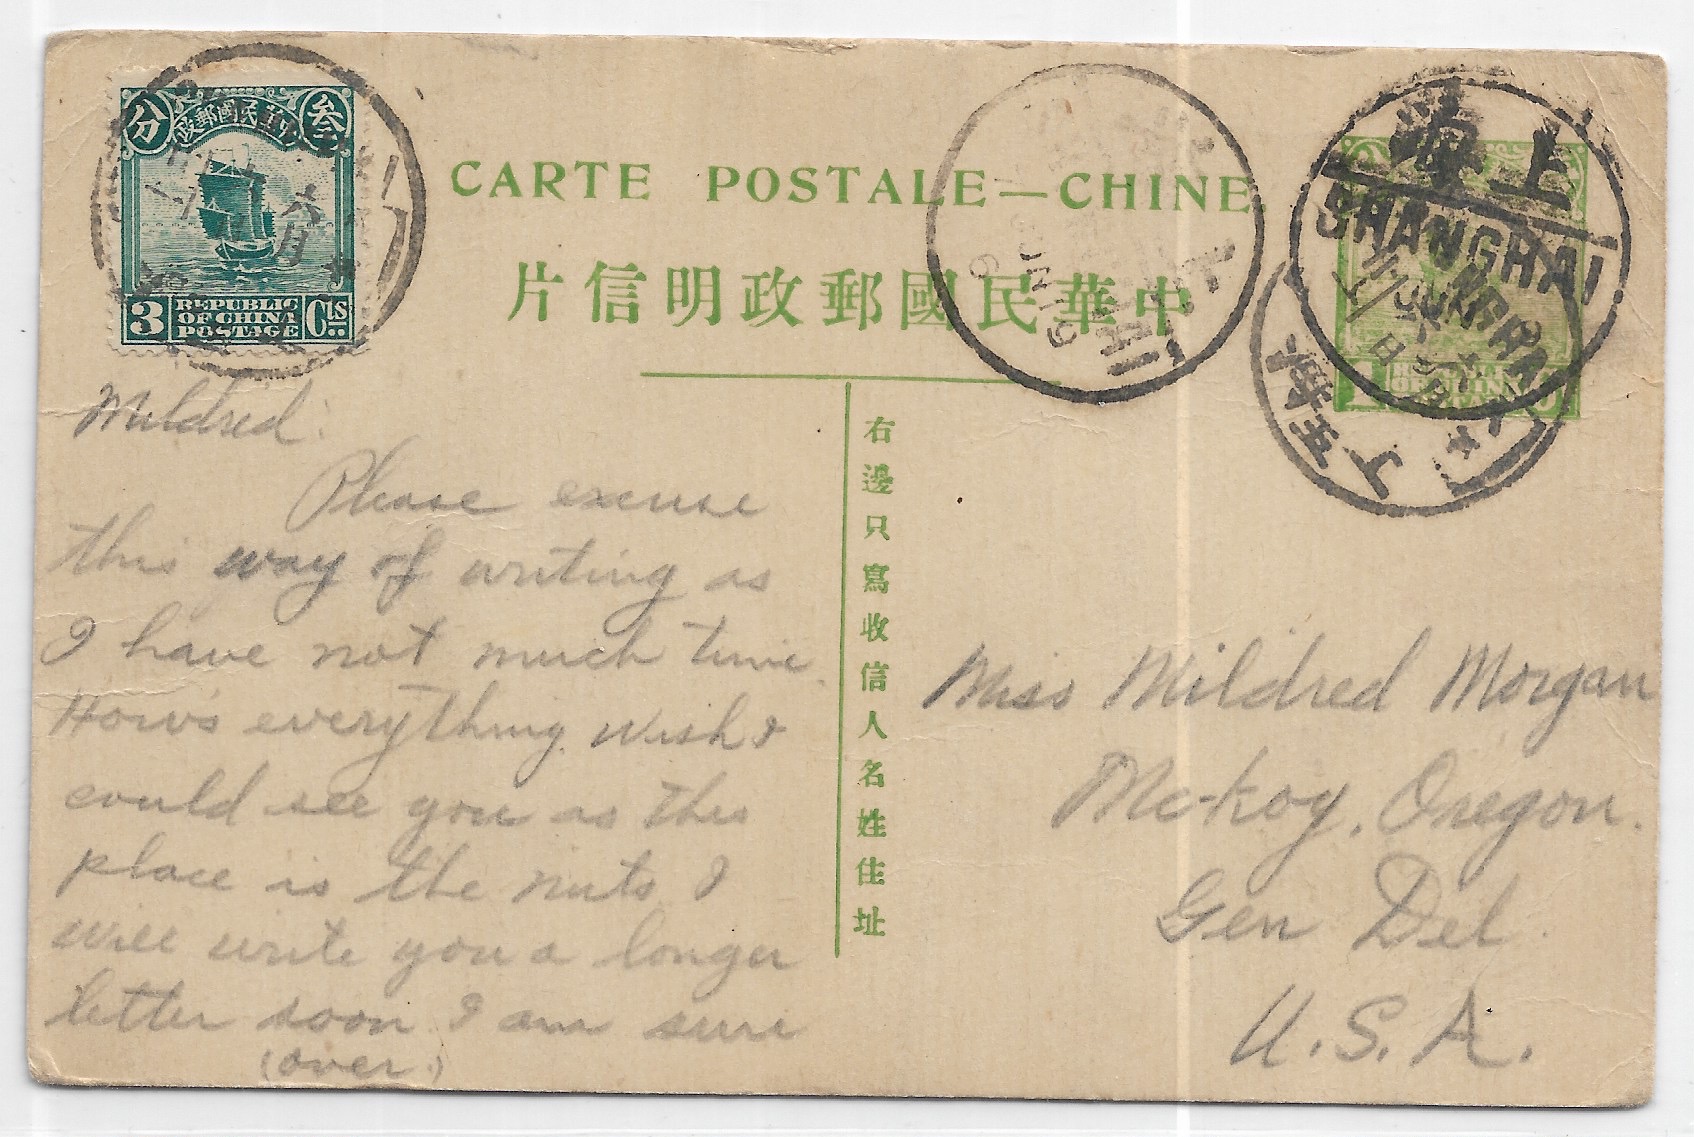 分 中華民國郵政 叁
3 REPUBLIC OF CHINA POSTAGE Cts
六月
CARTE POSTALE—CHINE.
中華民國郵政明信片
上海
SHANGHAI
右邊只寫收信人名姓住址
Mildred:
Please excuse
this way of writing as
I have not much time.
Hows everything. Wish I
could see you as this
place is the nuts. I
will write you a longer
letter soon. I am sure
(over.)
Miss Mildred Morgan
McKoy, Oregon.
Gen Del.
U.S.A.